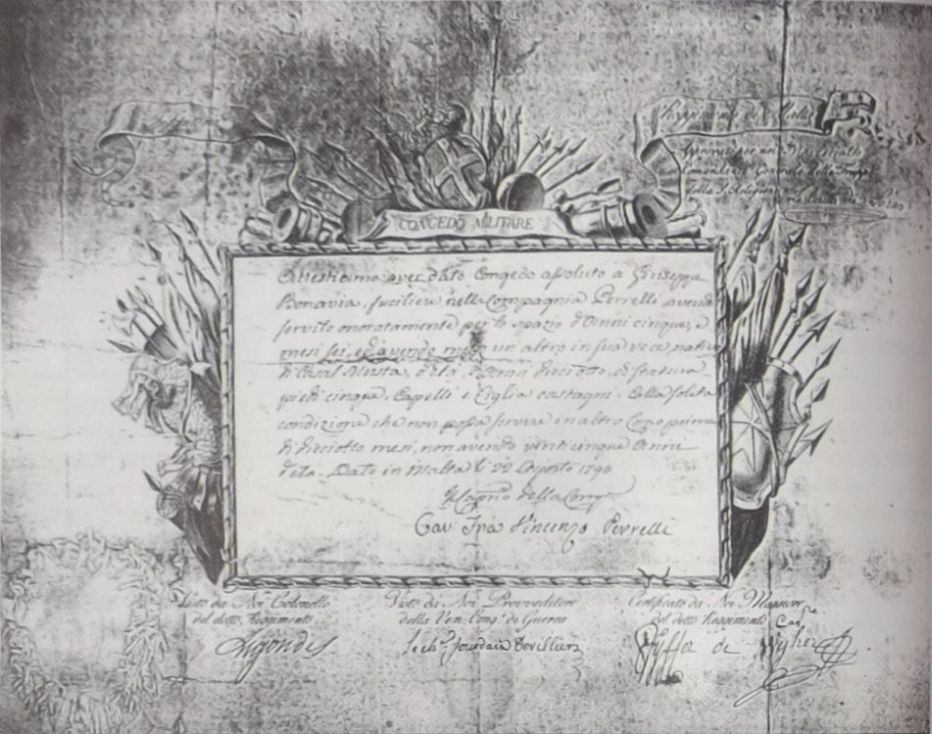 Reggimento di Malta
Approvato per noi
Comandante Generale delle Truppe
della S. Religione
CONGEDO MILITARE
Attestiamo aver dato Congedo assoluto a Giuseppe
Bonavia, fuciliere nella Compagnia Perrelli avendo
servito onoratamente per lo spazio d'Anni cinque, e
mesi sei, ed avendo messo un'altro in sua vece, nativo
di Casal, d'età d'Anni dieciotto, di statura
piedi cinque, Capelli e Ciglia castagni, Colla solita
condizione che non possa servire in altro Corpo prima
di dieciotto mesi, non avendo venti cinque Anni
d'età. Dato in Malta li 22 Agosto 1790
Il Capno della Compa
Cav Frà Vincenzo Perrelli
Visto da Noi Colonello
del detto Reggimento
Visto da Noi Provveditore
della Ven. Congne di Guerra
Jourdain
Certificato da Noi Maggiore
del detto Reggimento
de